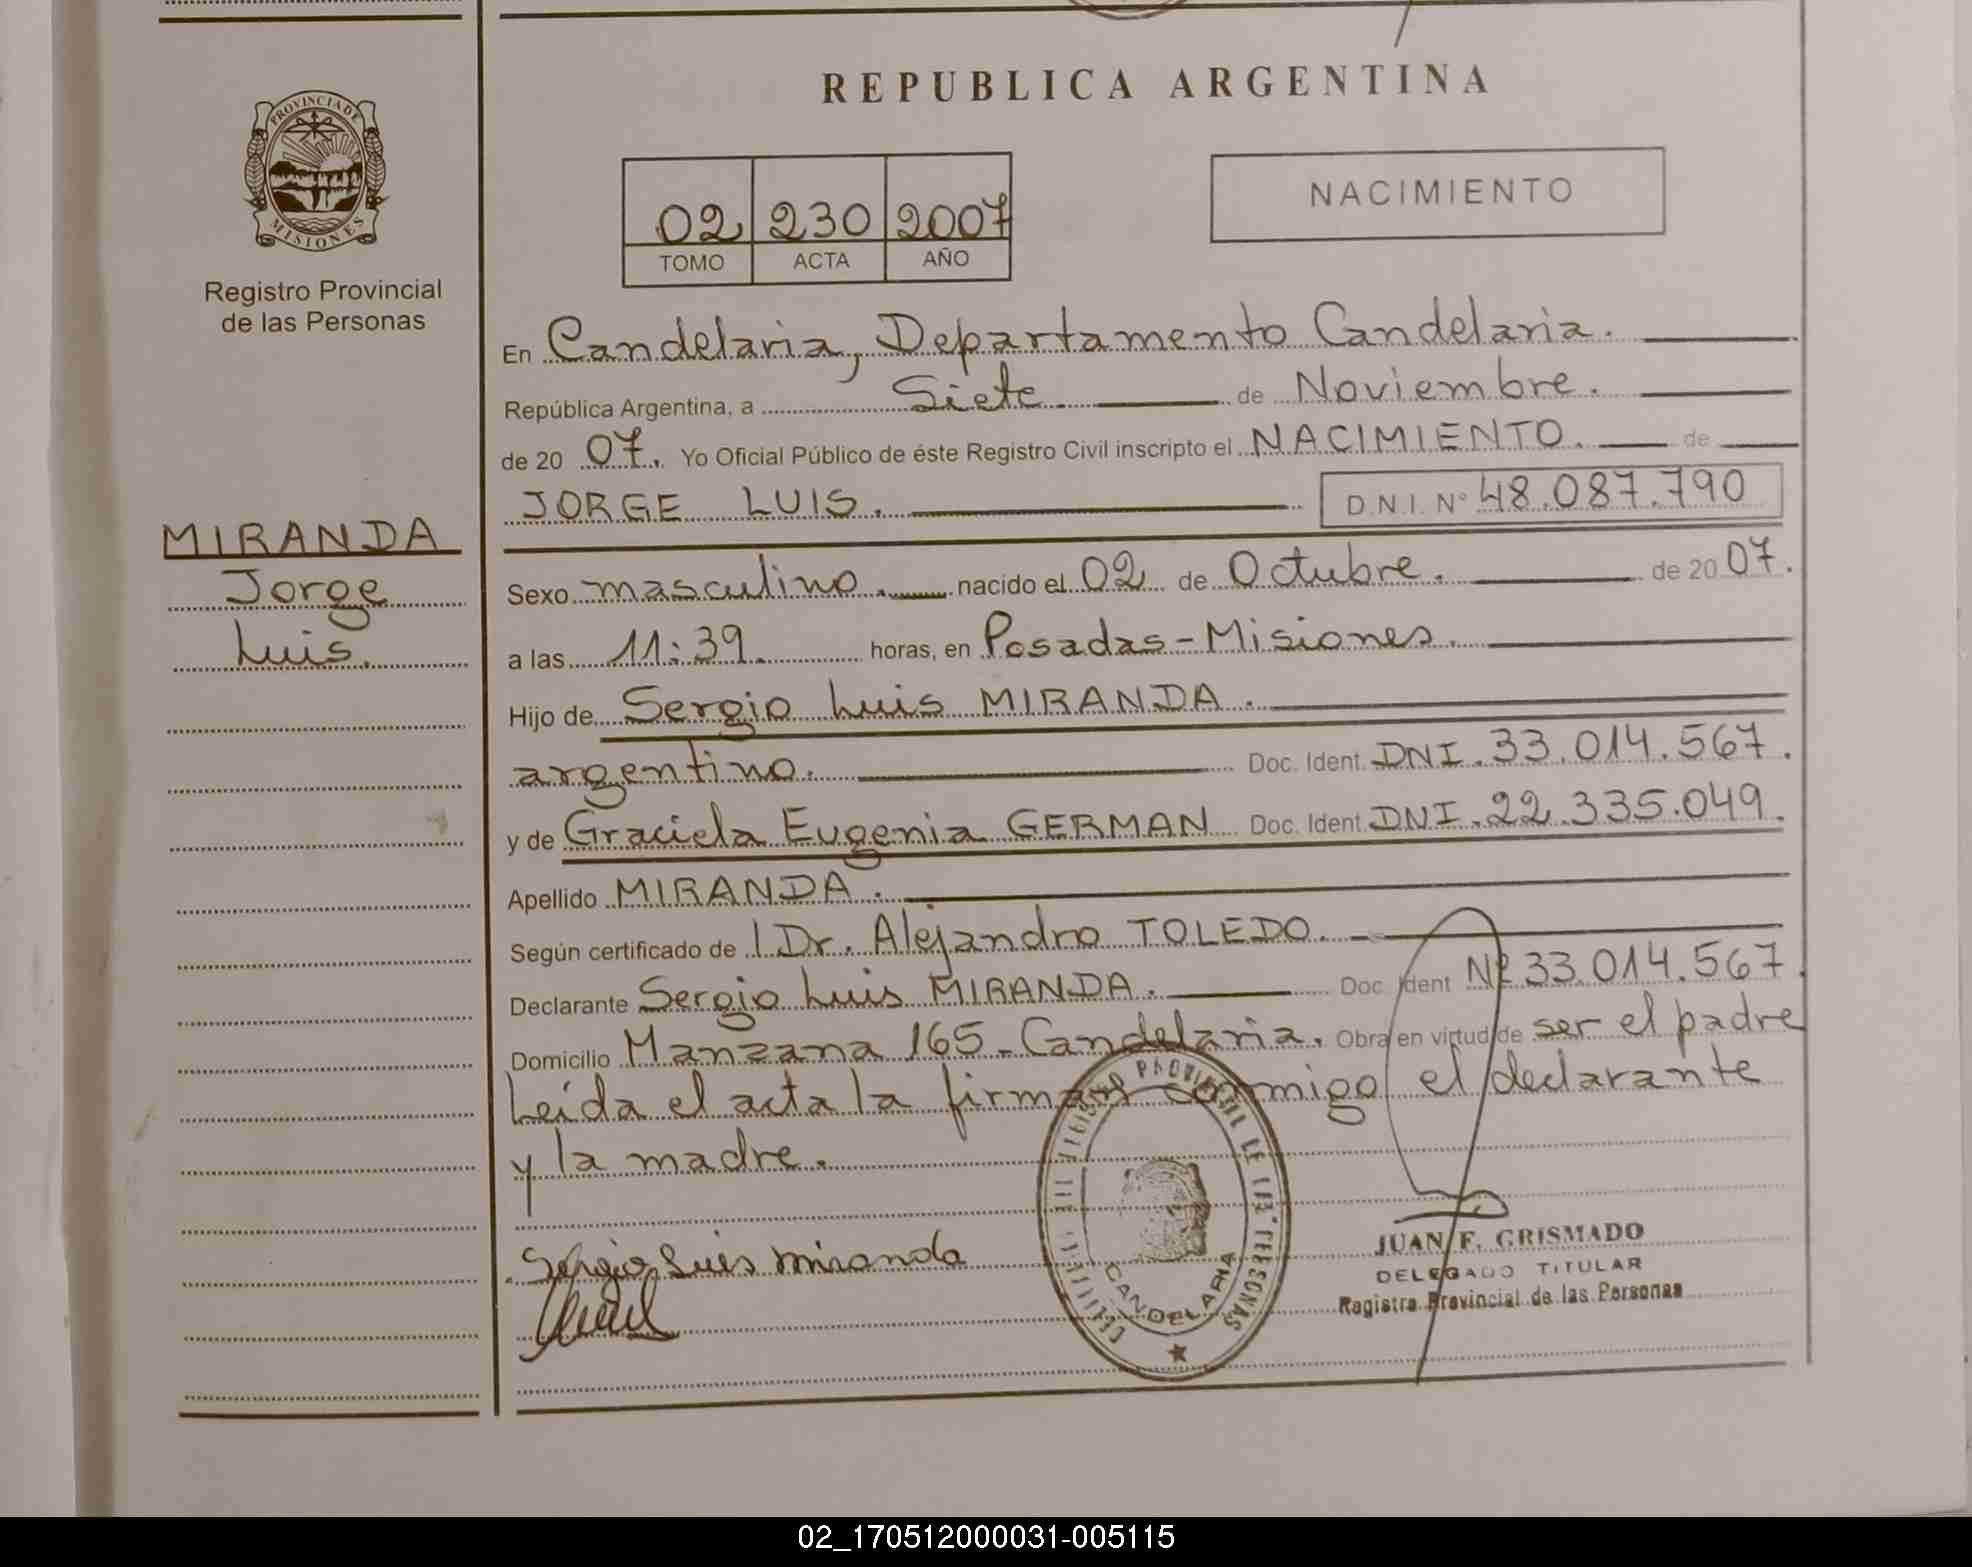 REPUBLICA ARGENTINA
PROVINCIA DE
MISIONES
Registro Provincial
de las Personas
02 230 2007
TOMO ACTA AÑO
NACIMIENTO
En Candelaria, Departamento Candelaria.
República Argentina, a Siete de Noviembre.
de 20 07. Yo Oficial Público de éste Registro Civil inscripto el NACIMIENTO. de
JORGE LUIS. D.N.I. Nº 48.087.790
MIRANDA
Jorge
Luis.
Sexo masculino. nacido el 02 de Octubre. de 20 07.
a las 11:39. horas, en Posadas-Misiones.
Hijo de Sergio Luis MIRANDA.
argentino. Doc. Ident. DNI. 33.014.567.
y de Graciela Eugenia GERMAN Doc. Ident DNI. 22.335.049.
Apellido MIRANDA.
Según certificado de l Dr. Alejandro TOLEDO.
Declarante Sergio Luis MIRANDA. Doc. Ident Nº 33.014.567.
Domicilio Manzana 165 - Candelaria. Obra en virtud de ser el padre
Leída el acta la firman conmigo el declarante
y la madre.
Sergio Luis Miranda
PROVINCIAL DE LAS PERSONAS
CANDELARIA
JUAN F. GRISMADO
DELEGADO TITULAR
Registro Provincial de las Personas
02_170512000031-005115